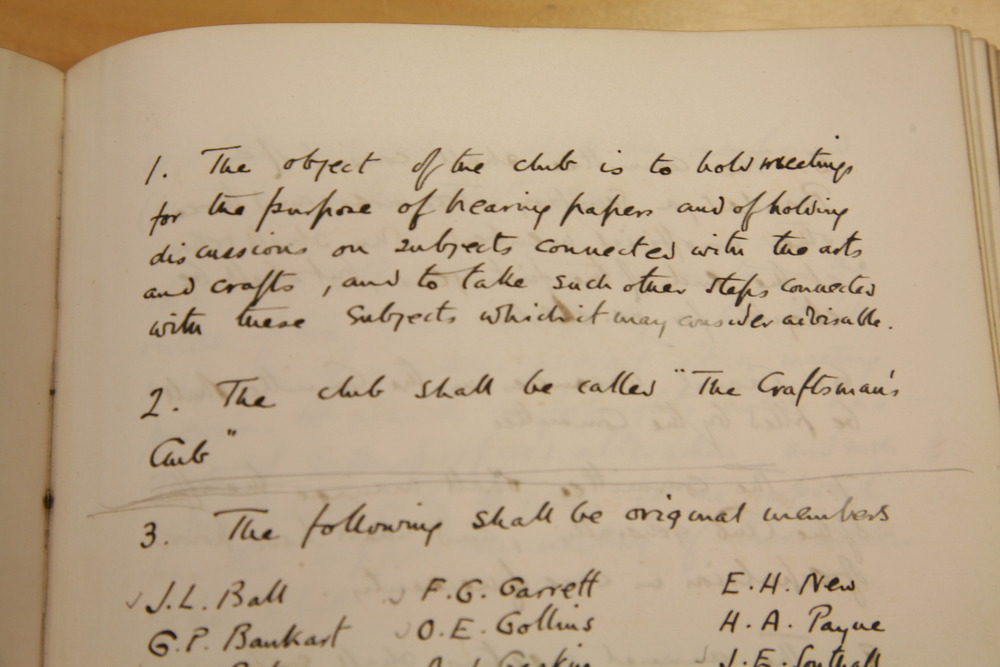 1. The object of the club is to hold meetings
for the purpose of hearing papers and of holding
discussions on subjects connected with the arts
and crafts, and to take such other steps connected
with these subjects which it may consider advisable.
2. The club shall be called "The Craftsman's
Club"
3. The following shall be original members
J.L. Ball F.G. Garrett E.H. New
G.P. Bankart O.E. Gollins H.A. Payne
Gaskin J.E. Southall